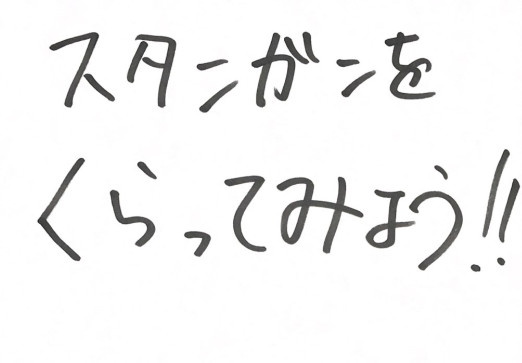 スタンガンを
くらってみよう!!